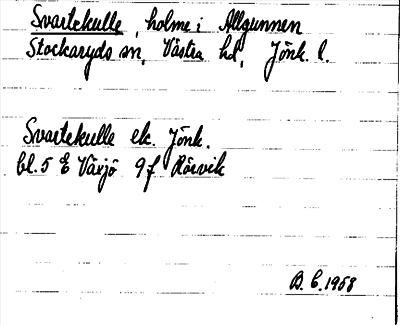 Svartekulle, holme i Allgunnen
Stockaryds sn, Västra hd, Jönk. l.
Svartekulle ek. Jönk.
bl. 5 E Växjö 9 f Rörvik
B. C. 1958